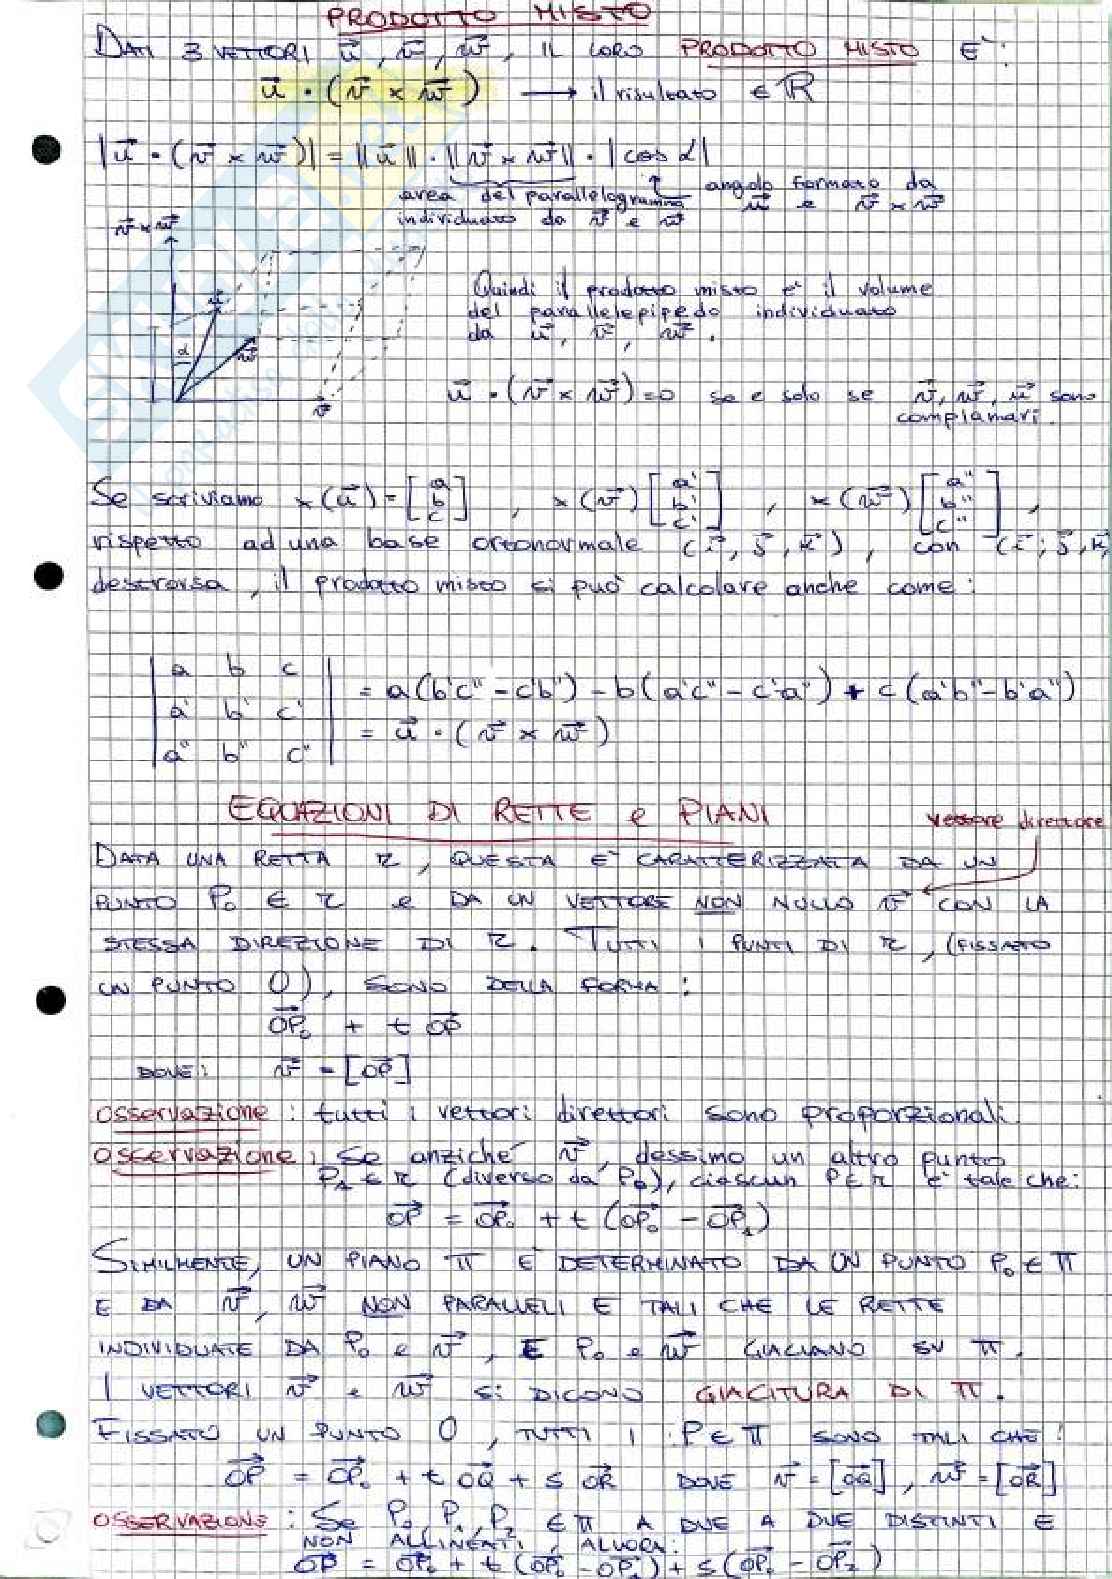 PRODOTTO MISTO
DATI 3 VETTORI u⃗, v⃗, w⃗, IL LORO PRODOTTO MISTO E':
u⃗ · (v⃗ × w⃗) → il risultato ∈ ℝ
|u⃗ · (v⃗ × w⃗)| = ||u⃗|| · ||v⃗ × w⃗|| · |cos α|
area del parallelogramma individuato da v⃗ e w⃗
angolo formato da u⃗ e v⃗ × w⃗
v⃗ × w⃗
u⃗
α
w⃗
v⃗
Quindi il prodotto misto e' il volume
del parallelepipedo individuato
da u⃗, v⃗, w⃗.
u⃗ · (v⃗ × w⃗) = 0 se e solo se v⃗, w⃗, u⃗ sono
complanari.
Se scriviamo x(u⃗) = [a b c], x(v⃗) [a' b' c'], x(w⃗) [a'' b'' c''],
rispetto ad una base ortonormale (i⃗, j⃗, k⃗), con (i⃗, j⃗, k⃗)
destrorsa, il prodotto misto si può calcolare anche come:
| a b c |
| a' b' c' | = a(b'c'' - c'b'') - b(a'c'' - c'a'') + c(a'b'' - b'a'')
| a'' b'' c'' | = u⃗ · (v⃗ × w⃗)
EQUAZIONI DI RETTE e PIANI
vettore direttore
DATA UNA RETTA r, QUESTA E' CARATTERIZZATA DA UN
PUNTO P₀ ∈ r e DA UN VETTORE NON NULLO v⃗ CON LA
STESSA DIREZIONE DI r. TUTTI I PUNTI DI r, (FISSATO
UN PUNTO O), SONO DELLA FORMA:
OP₀ + t OP
DOVE: v⃗ = [OP]
osservazione: tutti i vettori direttori sono proporzionali.
osservazione: Se anziché v⃗, dessimo un altro punto
P₁ ∈ r (diverso da P₀), ciascun P ∈ r e' tale che:
OP = OP₀ + t (OP₀ - OP₁)
SIMILMENTE, UN PIANO π E' DETERMINATO DA UN PUNTO P₀ ∈ π
E DA v⃗, w⃗ NON PARALLELI E TALI CHE LE RETTE
INDIVIDUATE DA P₀ e v⃗, E P₀ e w⃗ GIACIANO SU π.
I VETTORI v⃗ e w⃗ si DICONO GIACITURA DI π.
FISSATO UN PUNTO O, TUTTI I P ∈ π SONO TALI CHE:
OP = OP₀ + t OQ + s OR DOVE v⃗ = [OQ], w⃗ = [OR]
OSSERVAZIONE: Se P₀ P₁ P₂ ∈ π A DUE A DUE DISTINTI E
NON ALLINEATI, ALLORA:
OP = OP₀ + t (OP₀ - OP₁) + s (OP₀ - OP₂)